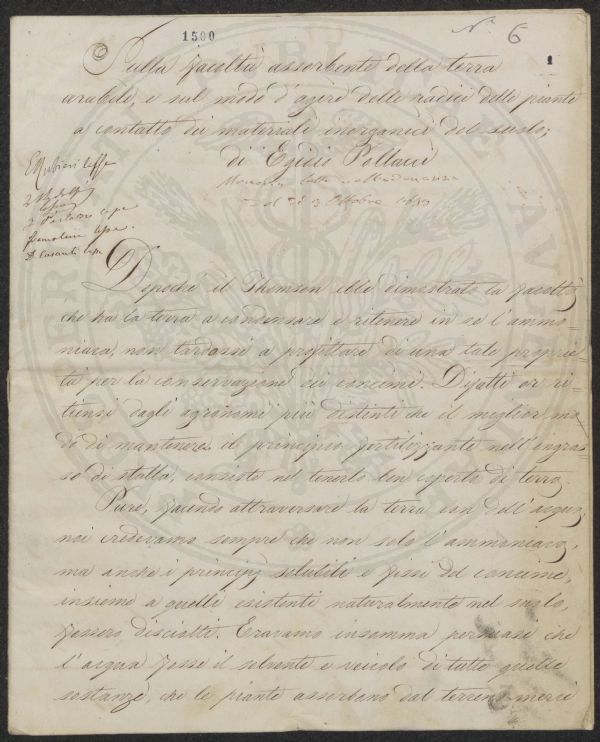 1500
N. 6
1
Sulla facoltà assorbente della terra
arabile, e sul modo d'agire delle radici delle piante
a contatto dei materiali inorganici del suolo;
di Egidio Pollacci
Memoria letta
del dì 3 Ottobre
E Rubieri lesse
lesse
lesse
Dopochè il Thomson ebbe dimostrato la facoltà
che ha la terra a condensare e ritenere in se l'ammo=
niaca, non tardossi a profittare di una tale proprie=
tà per la conservazione dei concimi. Difatti or ri=
tiensi dagli agronomi più distinti che il miglior mo=
do di mantenere il principio fertilizzante nell'ingras=
so di stalla, consiste nel tenerlo ben coperto di terra.
Pure, facendo attraversare la terra con dell'acqua,
noi credevamo sempre che non solo l'ammoniaca,
ma anche i principj solubili e fissi del concime,
insieme a quelli esistenti naturalmente nel suolo,
fossero disciolti. Eravamo insomma persuasi che
l'acqua fosse il solvente e veicolo di tutte quelle
sostanze, che le piante assorbano dal terreno mercè